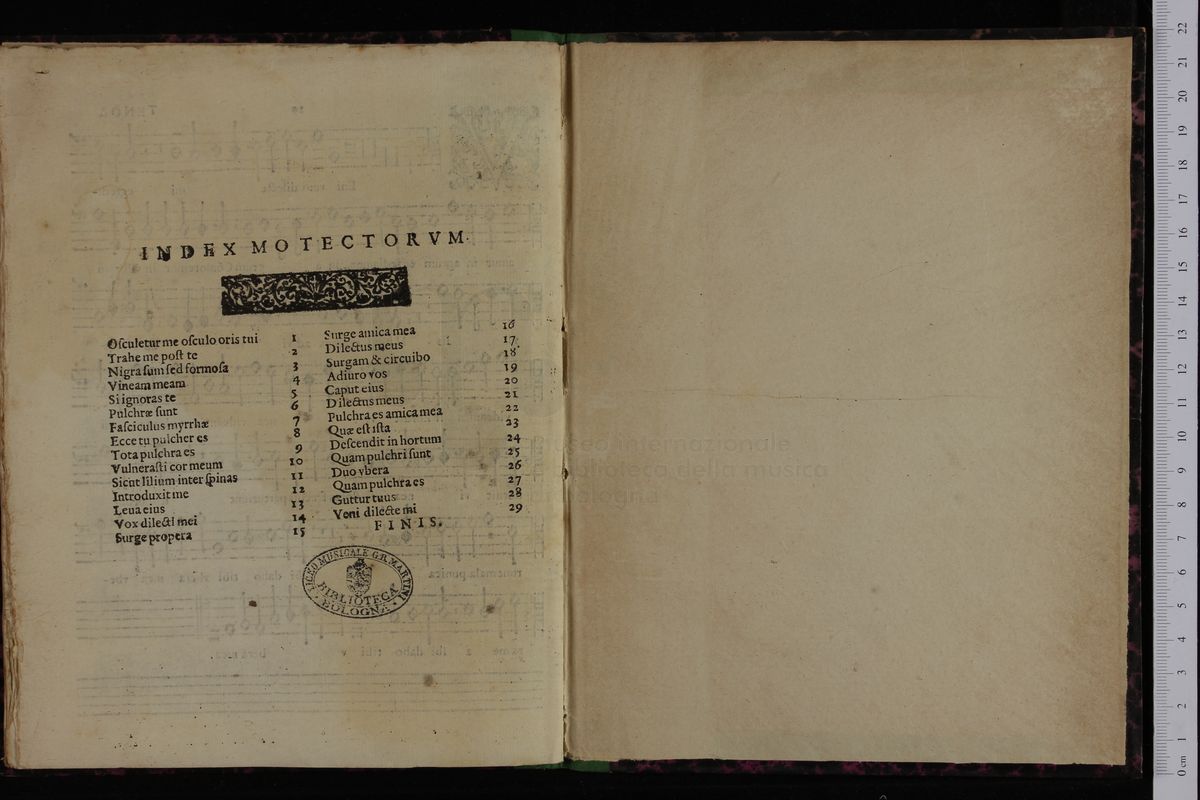 INDEX MOTECTORVM.
Oſculetur me oſculo oris tui 1
Trahe me poſt te 2
Nigra ſum ſed formoſa 3
Vineam meam 4
Si ignoras te 5
Pulchræ ſunt 6
Faſciculus myrrhæ 7
Ecce tu pulcher es 8
Tota pulchra es 9
Vulneraſti cor meum 10
Sicut lilium inter ſpinas 11
Introduxit me 12
Leua eius 13
Vox dilecti mei 14
Surge propera 15
Surge amica mea 16
Dilectus meus 17
Surgam & circuibo 18
Adiuro vos 19
Caput eius 20
Dilectus meus 21
Pulchra es amica mea 22
Quæ eſt iſta 23
Deſcendit in hortum 24
Quam pulchri ſunt 25
Duo vbera 26
Quam pulchra es 27
Guttur tuus 28
Veni dilecte mi 29
FINIS.
LICEO MUSICALE G.B. MARTINI
BIBLIOTECA
BOLOGNA
museo internazionale
e biblioteca della musica
di bologna
0 cm 1 2 3 4 5 6 7 8 9 10 11 12 13 14 15 16 17 18 19 20 21 22